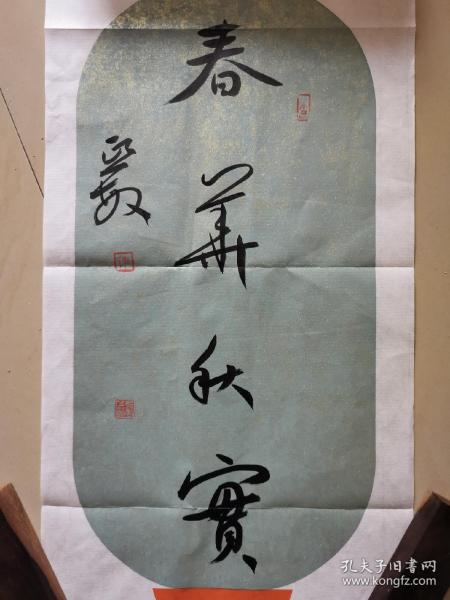 春華秋實
孔夫子旧书网
www.kongfz.com